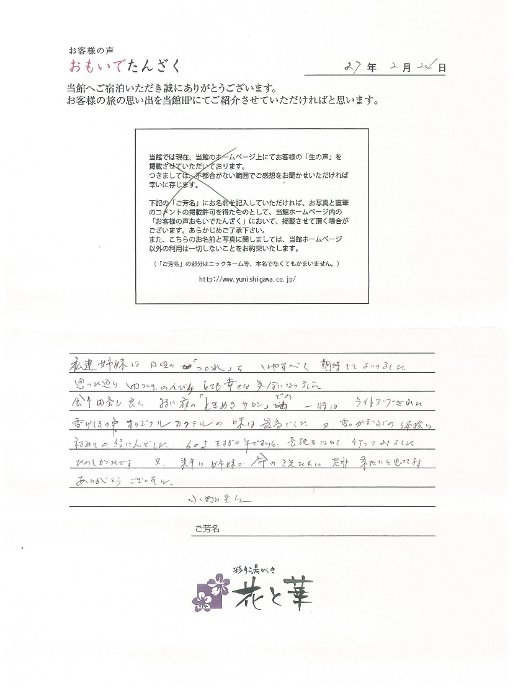 お客様の声
おもいでたんざく
27年 2月 26日
当館へご宿泊いただき誠にありがとうございます。
お客様の旅の思い出を当館HPにてご紹介させていただければと思います。
当館では現在、当館のホームページ上にてお客様の「生の声」を
掲載させていただいております。
つきましては、不都合がない範囲でご感想をお聞かせいただければ
幸いに存じます。
下記の「ご芳名」にお名前を記入していただければ、お写真と直筆
のコメントの掲載許可を得たものとして、当館ホームページ内の
「お客様の声おもいでたんざく」において、掲載させて頂く場合が
ございます。あらかじめご了承下さい。
また、こちらのお名前と写真に関しましては、当館ホームページ
以外の利用は一切しないことをお約束いたします。
(「ご芳名」の部分はニックネーム等、本名でなくてもかまいません。)
http://www.yunishigawa.co.jp/
私達姉妹は日頃の"つかれ"を いやすべく 期待してまいりました
思った通り ゆっくり のんびり とても幸せな気分になりました
特に夜の「ときめきサロン」での 一時は ライトアップされた
雪げしきの中 オリジナルカクテルの 味は最高でした 又 雪がきなどの経験は
初めての
又 来年も姉妹で 是非 来たいと思ってます
ありがとうございました
ご芳名
彩り湯かしき
花と華